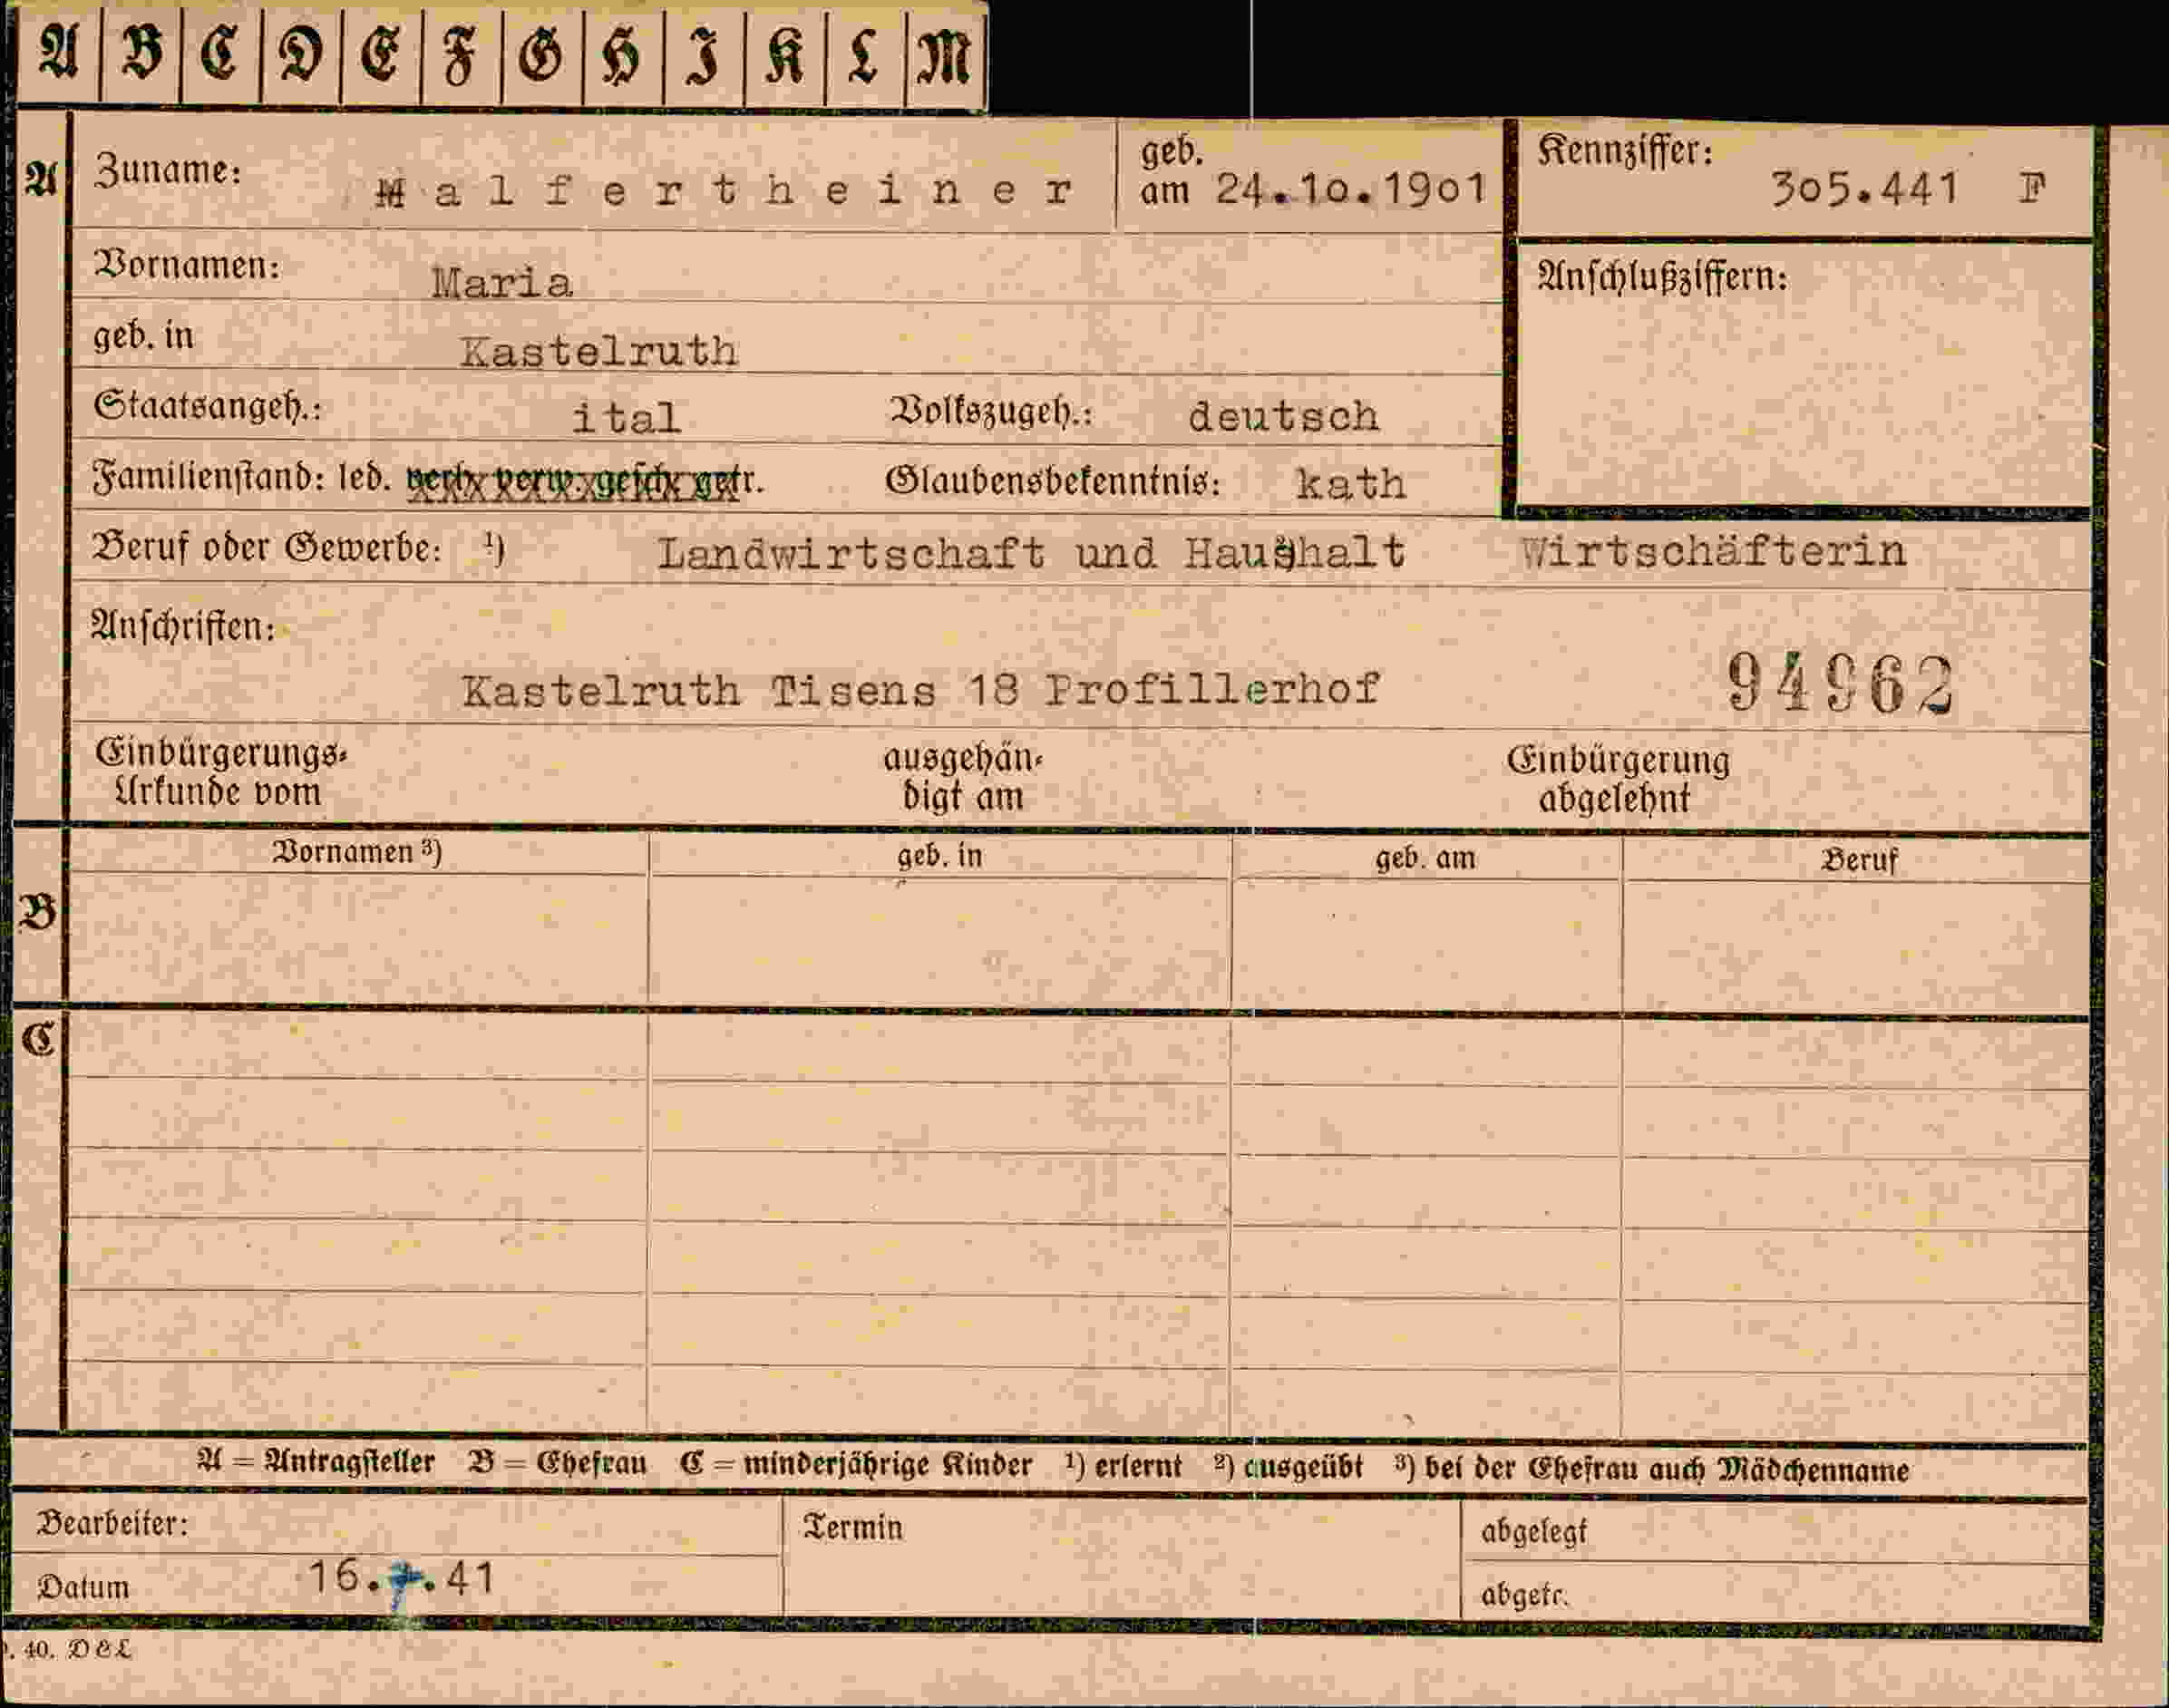 A B C D E F G H I K L M
A Zuname: Malfertheiner geb. am 24.10.1901 Kennziffer: 305.441 F
Vornamen: Maria Anschlußziffern:
geb. in Kastelruth
Staatsangeh.: ital Volkszugeh.: deutsch
Familienstand: led. verh. verw. gesch. getr. Glaubensbekenntnis: kath
Beruf oder Gewerbe: ¹) Landwirtschaft und Haushalt Wirtschäfterin
Anschriften:
Kastelruth Tisens 18 Profillerhof 94962
Einbürgerungs- ausgehän- Einbürgerung
Urkunde vom digt am abgelehnt
Vornamen ³) geb. in geb. am Beruf
B
C
A = Antragsteller B = Ehefrau C = minderjährige Kinder ¹) erlernt ²) ausgeübt ³) bei der Ehefrau auch Mädchenname
Bearbeiter: Termin abgelegt
Datum 16.7.41 abgetr.
. 40. D & L